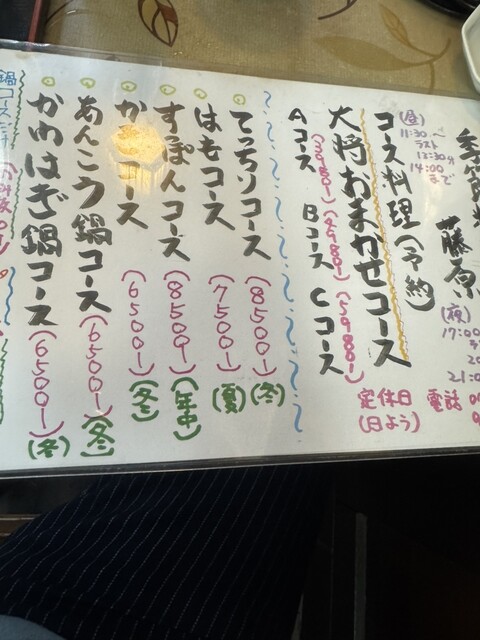 藤原
(昼)
11:30〜
ラスト
13:30分
14:00
まで
(夜)
17:00
21:0
コース料理(予約)
大将おまかせコース
Aコース
(3980ー)
Bコース
(4980ー)
Cコース
(5980ー)
定休日
(日よう)
電話
てっちりコース(8500ー)(冬)
はもコース(7500ー)(夏)
すぽんコース(8500ー)(年中)
コース(6500ー)(冬)
あんこう鍋コース(6500ー)(冬)
かわはぎ鍋コース(6500ー)(冬)
鍋コース